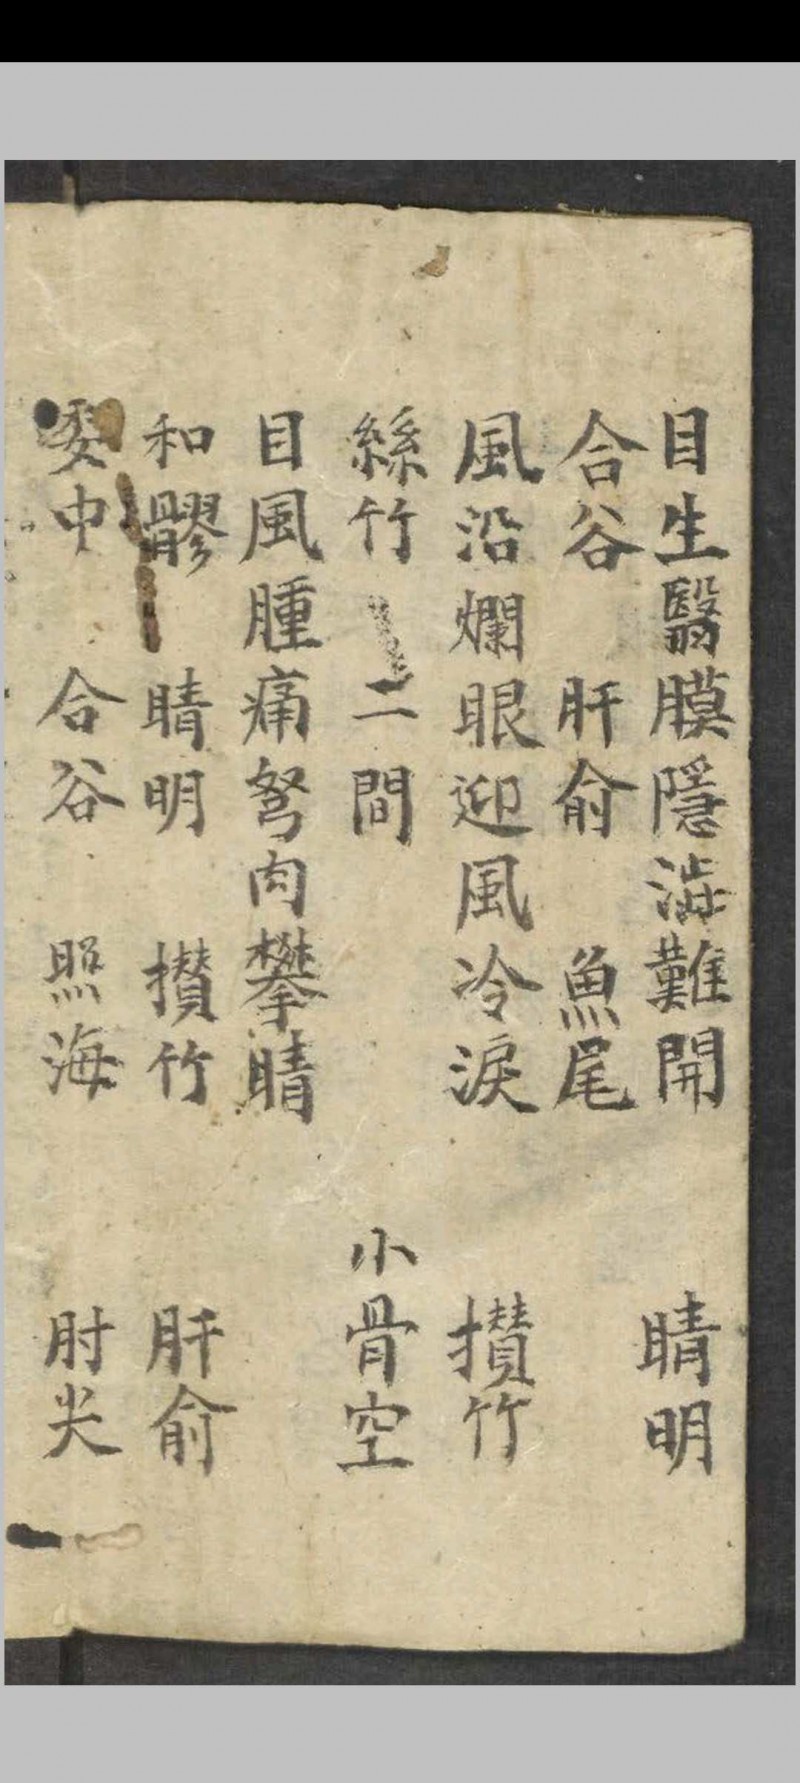 目生翳膜隱澁難開　睛明
合谷　肝俞　魚尾
風沿爛眼迎風冷淚　攢竹
絲竹　二間　小骨空
目風腫痛努肉攀睛
和髎　睛明　攢竹　肝俞
委中　合谷　照海　肘尖